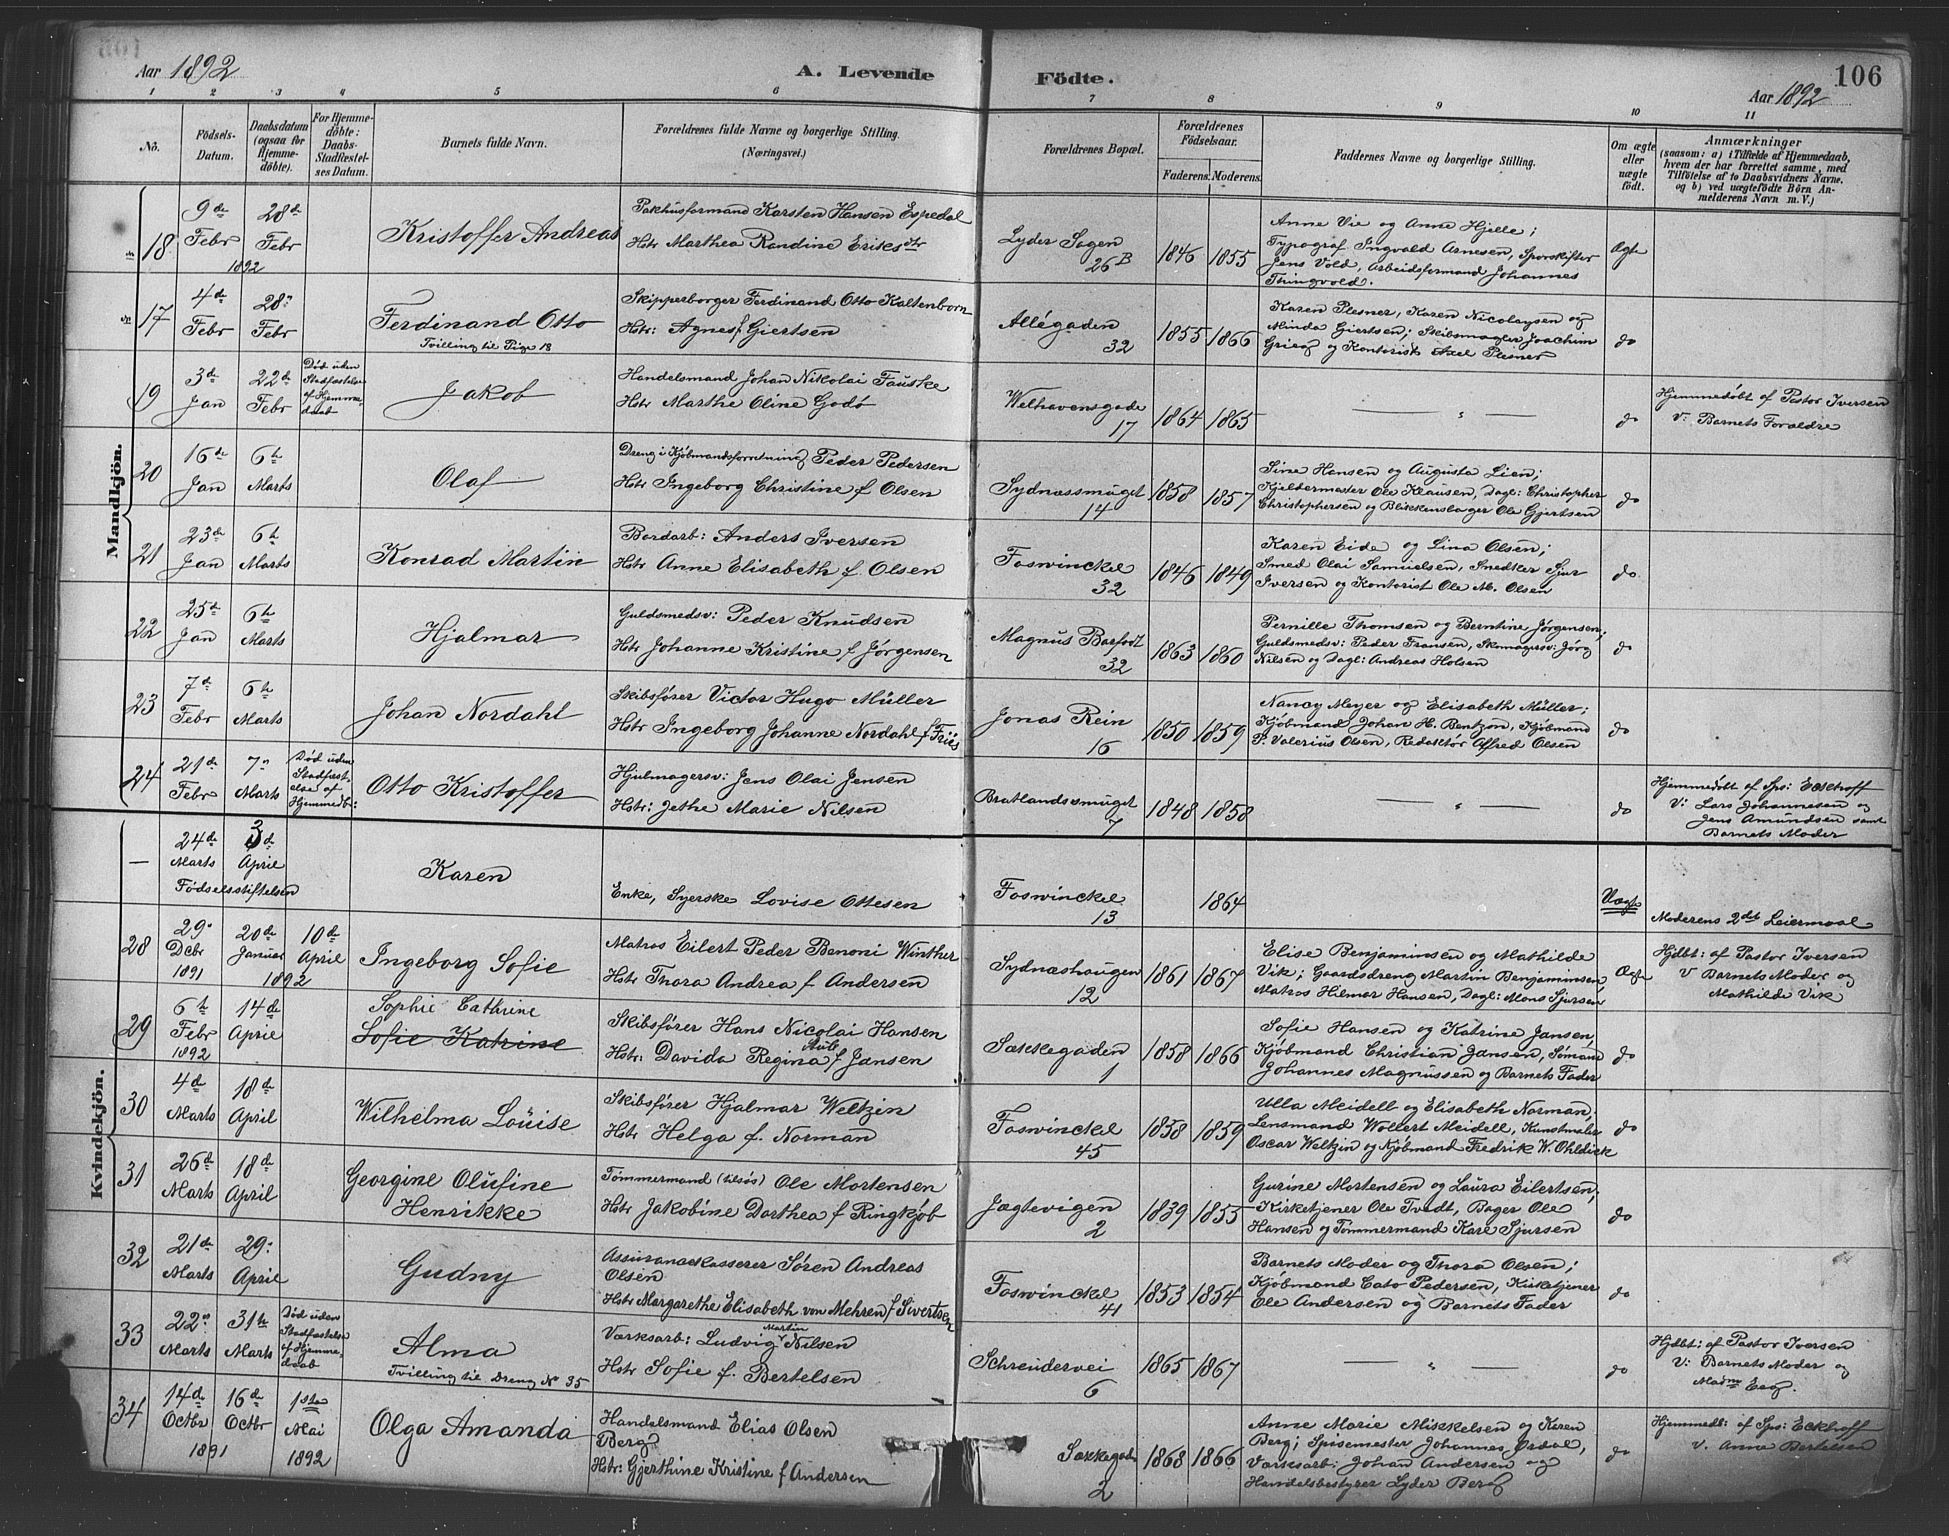 Aar 1892
A. Levende
Födte.
106
Aar 1892
1 2 3 4 5 6 7 8 9 10 11
No.
Födsels-Datum.
Daabsdatum (ogsaa for Hjemmedöbte).
For Hjemmedöbte: Daabs-Stadfæstelses Datum.
Barnets fulde Navn.
Forældrenes fulde Navne og borgerlige Stilling.
(Næringsvei.)
Forældrenes Bopæl.
Forældrenes Födselsaar.
Faderens. Moderens.
Faddernes Navne og borgerlige Stilling.
Om ægte eller uægte födt.
Anmærkninger
(saasom: a) i Tilfælde af Hjemmedaab, hvem der har forrettet samme, med Tilföielse af to Daabsvidners Navne, og b) ved uægtefödte Börn Anmelderens Navn m. V.)
Mandkjön.
18
9de Febr 1892
28de Febr
Kristoffer Andreas
Pakhusformand Karsten Hansen Espedal
Hstr Marthea Randine Eriksdtr
Lyder Sagen
26 B
1846
1855
Anne Vie og Anne Hjelle;
Typograf Ingvald Arnesen, Sporskifter
Jens Vold, Arbeidsformand Johannes
Thingvold.
Ægte
17
4de Febr
28: Febr
Ferdinand Otto
Tvilling til Pige 18
Skipperborger Ferdinand Otto Kaltenborn
Hstr: Agnes f Giertsen
Allégaden
32
1855
1866
Karen Plesner, Karen Nicolaysen og
Minda Giertsen; Skibsmægler Joachim
Grieg og Kontorist Axel Plesner
do
19
3de Jan
22de Febr
Død uden Stadfæstelse af Hjemmedaab
Jakob
Handelsmand Johan Nikolai Fauske
Hstr Marthe Oline Godø
Welhavensgade
17
1864
1865
— " —
do
Hjemmedøbt af Pastor Iversen
V: Barnets Forældre
20
16de Jan
6te Marts
Olaf
Dreng i Kjøbmandsforretning Peder Pedersen
Hstr Ingeborg Christine f Olsen
Sydnæssmuget
14
1858
1857
Sine Hansen og Augusta Lien;
Kjeldermester Ole Klausen, Dagl: Christopher
Christophersen og Blikkenslager Ole Gjertsen
do
21
23de Jan
6te Marts
Konrad Martin
Bordarb: Anders Iversen
Hstr Anne Elisabeth f. Olsen
Foswinckel
32
1846
1849
Karen Eide og Lina Olsen;
Smed Olai Samuelsen, Snedker Sjur
Iversen og Kontorist Ole M. Olsen
do
22
25de Jan
6te Marts
Hjalmar
Guldsmedsv: Peder Knudsen
Hstr Johanne Kristine f Jørgensen
Magnus Barfodt
32
1863
1860
Pernille Thomsen og Berntine Jørgensen;
Guldsmedsv: Peder Fransen, Skomagersv: Jørg
Nilsen og Dagl: Andreas Holsen
do
23
7de Febr
6te Marts
Johan Nordahl
Skibsfører Victor Hugo Müller
Hstr Ingeborg Johanne Nordahl f Friis
Jonas Rein
16
1850
1859
Nancy Meyer og Elisabeth Müller;
Kjøbmand Johan H. Bentzon, Kjøbmand
P. Valerius Olsen, Redaktør Alfred Olsen
do
24
21de Febr
7" Marts
Død uden Stadfæstelse af Hjemmedb:
Otto Kristoffer
Hjulmagersv: Jens Olai Jensen
Hstr: Jethe Marie Nilsen
Bratlandssmuget
7
1848
1858
— " —
do
Hjemmedøbt af Sps: Eckhoff
V: Lars Johannesen og
Jens Amundsen samt
Barnets Moder
Kvindekjön.
—
24de Marts
Fødselsstiftelsen
3de April
Karen
Enke, Syerske Lovise Ottesen
Foswinckel
13
1864
Uægte
Moderens 2det Leiermaal
28
29" Dcbr 1891
20de Januar 1892
10de April
Ingeborg Sofie
Matros Eilert Peder Benoni Winther
Hstr Thora Andrea f Andersen
Sydnæshaugen
12
1861
1867
Elise Benjaminsen og Mathilde
Vik; Gaardsdreng Martin Benjaminsen,
Matros Hilmar Hansen, Dagl: Mons Sjursen
Ægte
Hjdbt: af Pastor Iversen
V Barnets Moder og
Mathilde Vik
29
6te Febr 1892
14de April
Sophie Cathrine
Sofie Katrine
Skibsfører Hans Nicolai Hansen
Aub
Hstr: Davida Regina f Jansen
Sækkegaden
1
1858
1866
Sofie Hansen og Katrine Jansen,
Kjøbmand Christian Jansen, Sømand
Johannes Magnussen og Barnets Fader
do
30
4de Marts
18de April
Wilhelma Louise
Skibsfører Hjalmar Weltzin
Hstr Helga f. Norman
Foswinckel
45
1858
1859
Ulla Meidell og Elisabeth Norman;
Lensmand Wollert Meidell, Kunstmaler
Oscar Weltzin og Kjøbmand Fredrik W. Ohldick
do
31
26de Marts
18de April
Georgine Olufine
Henrikke
Tømmermand (tilsøs) Ole Mortensen
Hstr Jakobine Dorthea f Ringkjøb
Jægtevigen
2
1839
1855
Gurine Mortensen og Laura Eilertsen,
Kirketjener Ole Tvedt, Bager Ole
Hansen og Tømmermand Kare Sjursen
do
32
21de Marts
29: April
Gudny
Assurancekasserer Søren Andreas
Olsen
Hstr Margarethe Elisabeth von Mehren f Sivertsen
Foswinckel
41
1853
1854
Barnets Moder og Thora Olsen;
Kjøbmand Cato Pedersen, Kirketjener
Ole Andersen og Barnets Fader
do
33
22" Marts
31te Marts
Død uden Stadfæstelse af Hjemmedaab
Alma
Tvilling til Dreng No 35
Værksarb: Ludvig Martin Nilsen
Hstr Sofie f. Bertelsen
Schreudervei
6
1865
1867
— " —
do
Hjdbt: af Pastor Iversen
V: Barnets Moder og
Madme Eeg.
34
14de Octbr 1891
16de Octbr
1ste Mai 1892
Olga Amanda
Handelsmand Elias Olsen
Berg
Hstr: Gjerthine Kristine f Andersen
Sækkegaden
2
1868
1866
Anne Marie Mikkelsen og Karen
Berg; Spisemester Johannes Ordal,
Værksarb: Johan Andersen og
Handelsbestyrer Lyder Berg
do
Hjemmedb: af Sps: Eckhoff
V. Anna Bertelsen